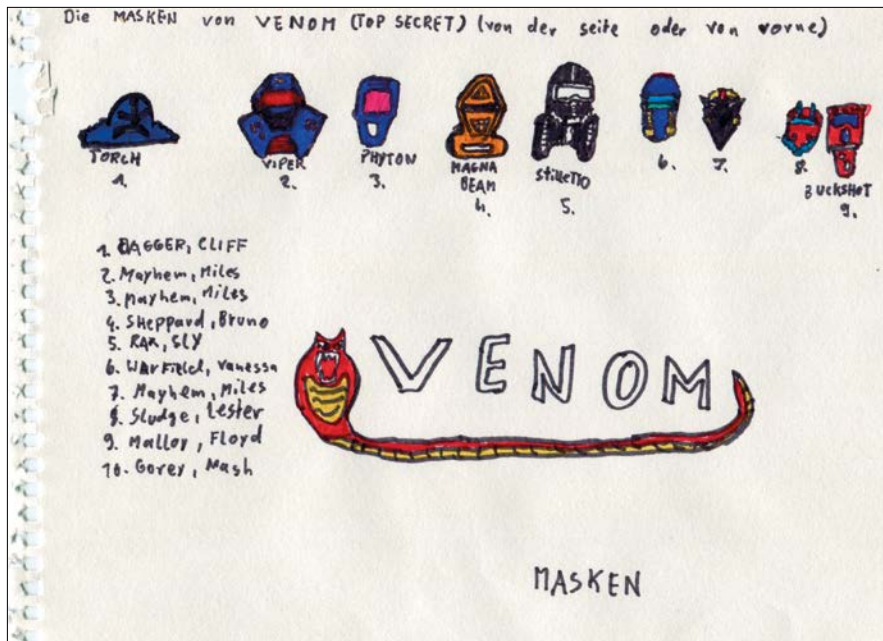 Die MASKEN von VENOM (TOP SECRET) (von der seite oder von vorne)
TORCH
1.
VIPER
2.
PHYTON
3.
MAGNA
BEAM
4.
STILLETTO
5.
6.
7.
8.
BUCKSHOT
9.
1. DAGGER, CLIFF
2. Mayhem, Miles
3. Mayhem, Miles
4. Sheppard, Bruno
5. RAX, SLY
6. WARField, Vanessa
7. Mayhem, Miles
8. Sludge, Lester
9. Malloy, Floyd
10. Gorey, Nash
VENOM
MASKEN